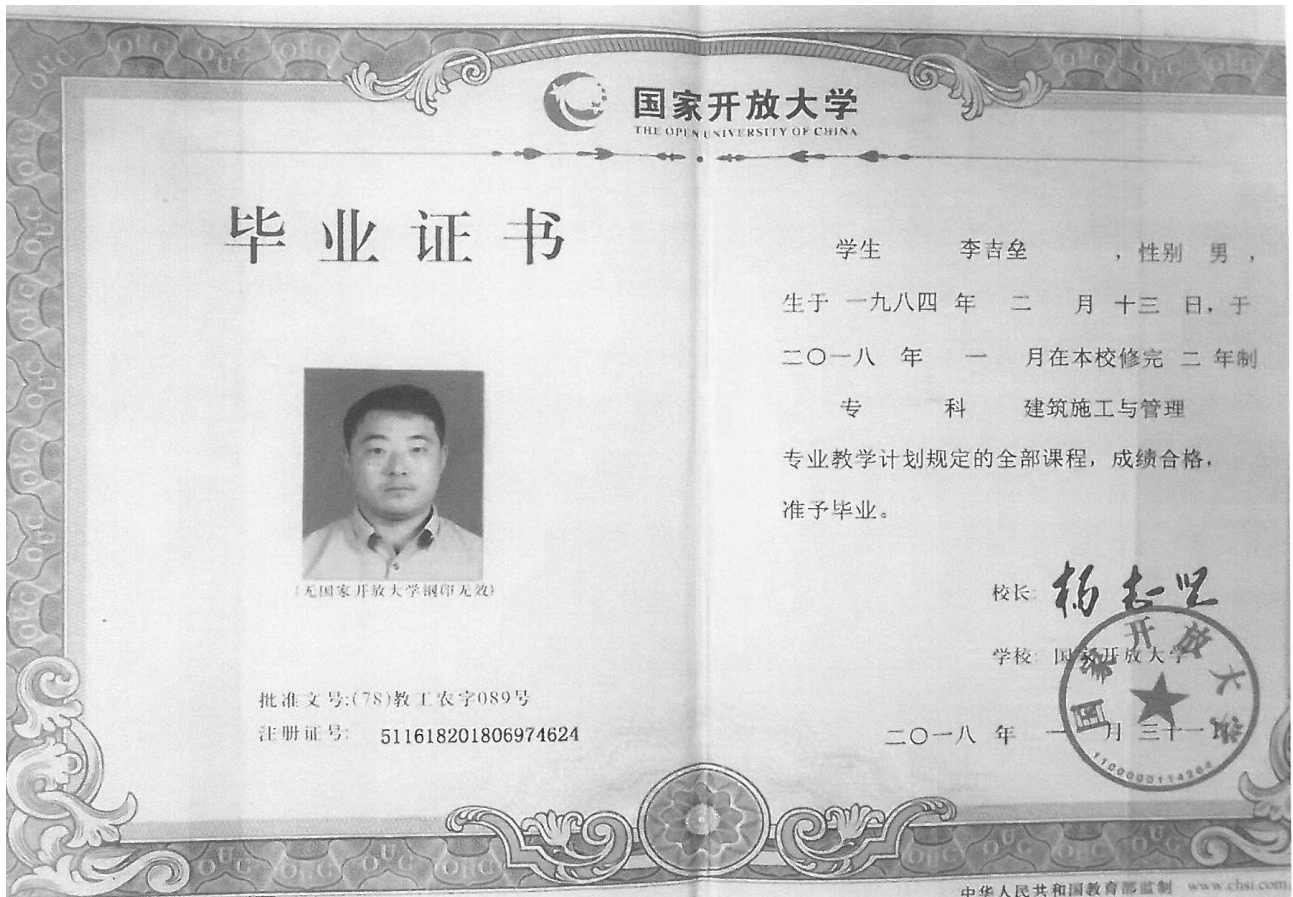 国家开放大学
THE OPEN UNIVERSITY OF CHINA
毕业证书
(无国家开放大学钢印无效)
批准文号:(78)教工农字089号
注册证号: 511618201806974624
学生 李吉垒 ,性别 男 ,
生于 一九八四 年 二 月 十三 日，于
二〇一八 年 一 月在本校修完 二 年制
专 科 建筑施工与管理
专业教学计划规定的全部课程，成绩合格，
准予毕业。
校长: 杨志坚
学校: 国家开放大学
二〇一八 年 一 月 三十一
国家开放大学
1100000114264
中华人民共和国教育部监制 www.chsi.com.